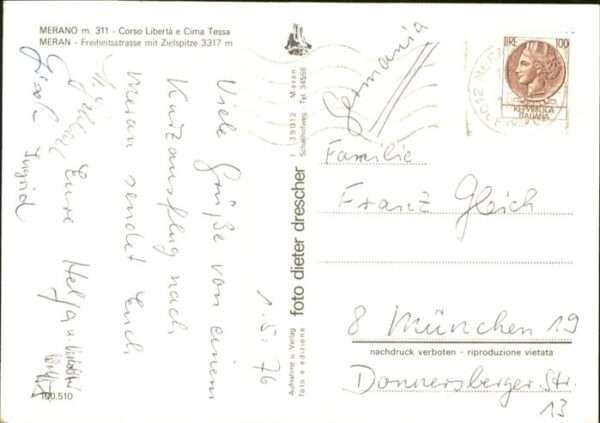 MERANO m. 311 - Corso Libertà e Cima Tessa
MERAN - Freiheitsstrasse mit Zielspitze 3317 m
1.5.76
Viele Grüße von einem
Kurzausflug nach
Meran sendet Euch
Eure Helga u.
Ingrid
100.510
Aufnahme u. Verlag
foto e edizione
foto dieter drescher
I 39012 Meran
Schafferweg Tel. 34568
LIRE 100
REPVBBLICA
ITALIANA
39012 MERA
Germania
Familie
Franz Gleich
8 München 19
nachdruck verboten - riproduzione vietata
Donnersberger Str.
13